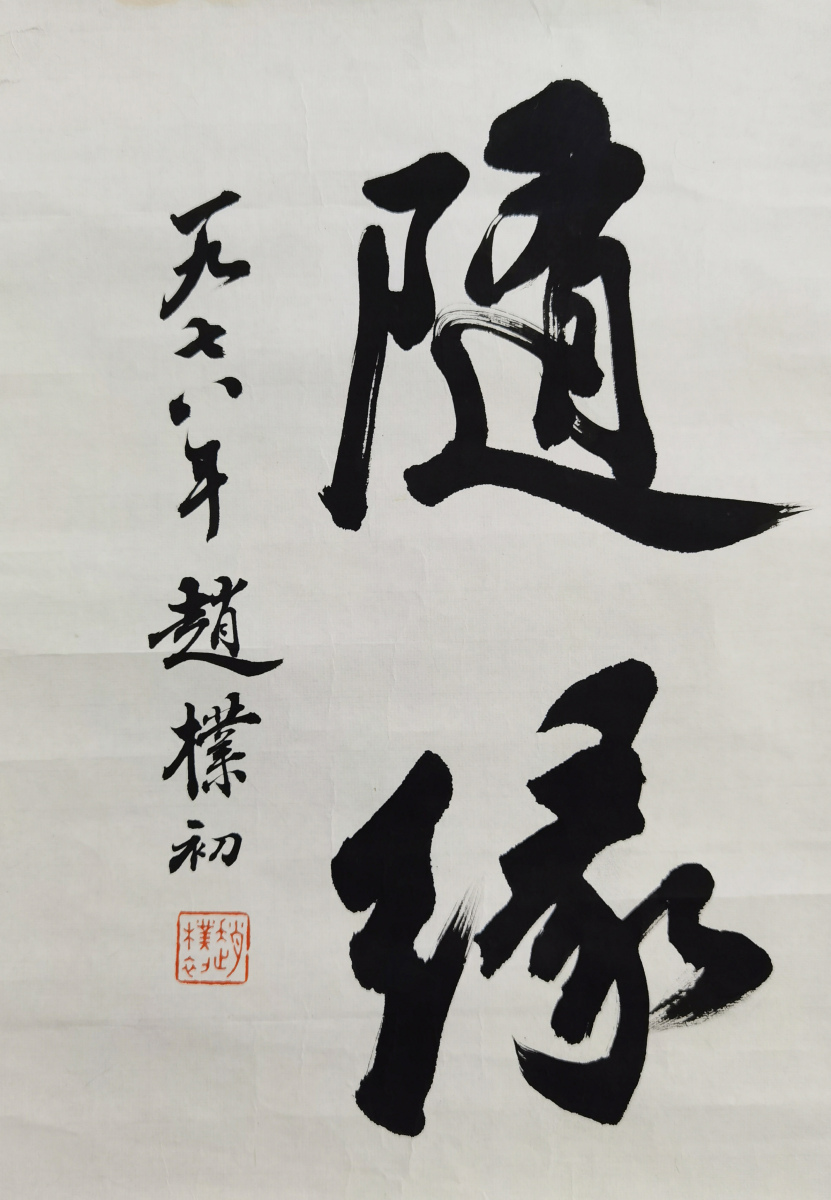 隨緣
一九七八年 趙樸初
趙樸初